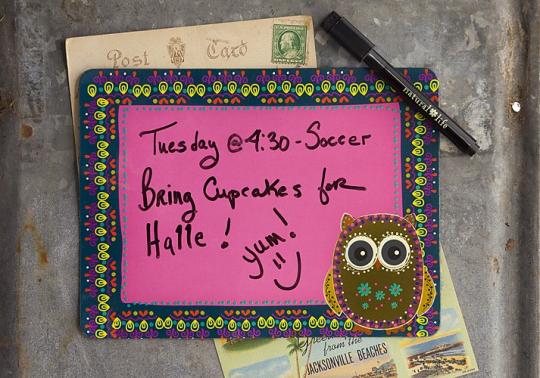 Post Card
natural life
Tuesday @ 4:30 - Soccer
Bring Cupcakes for
Halle !
yum!
from the
JACKSONVILLE BEACHES